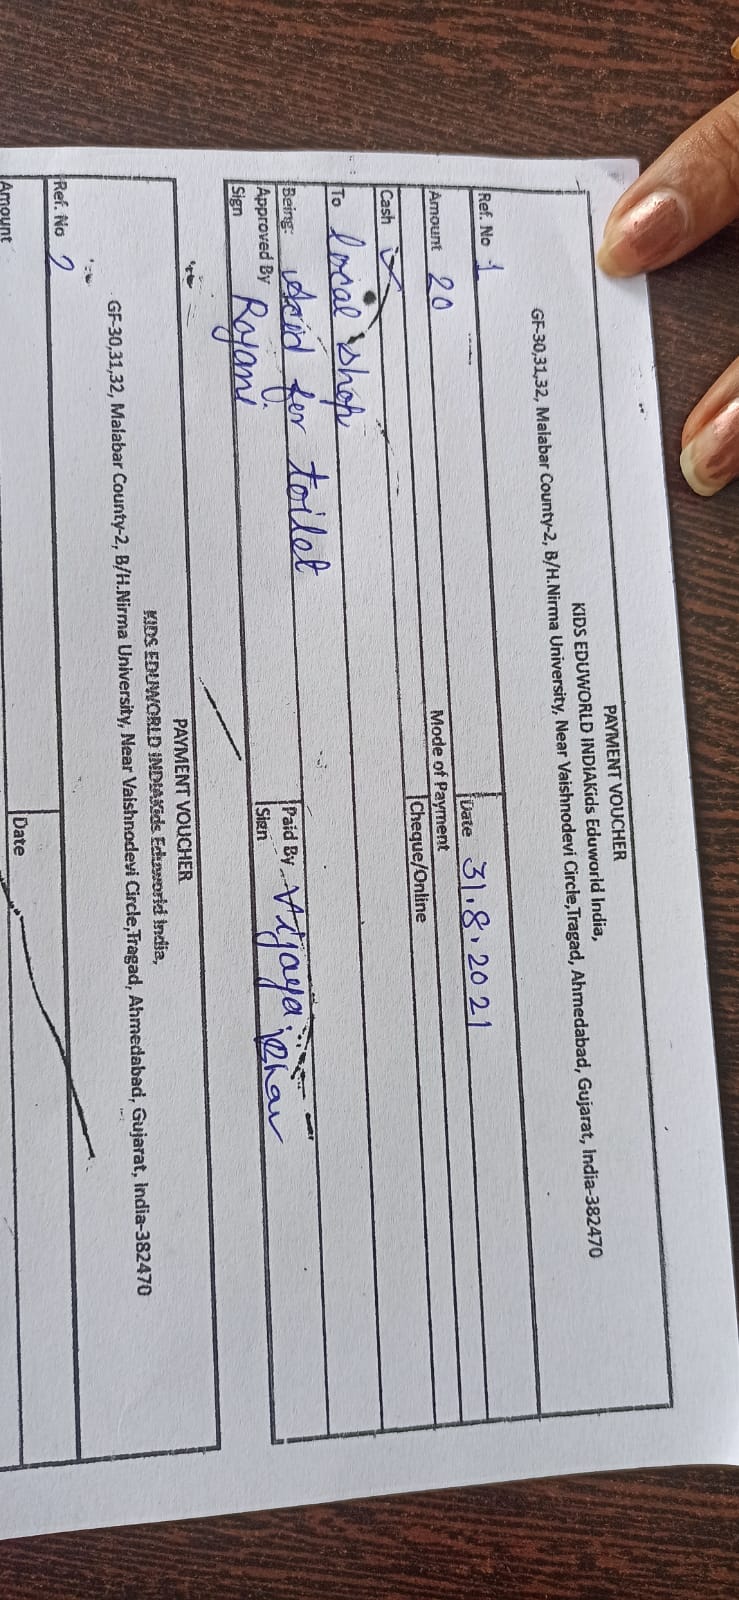 PAYMENT VOUCHER
KIDS EDUWORLD INDIAKids Eduworld India,
GF-30,31,32, Malabar County-2, B/H.Nirma University, Near Vaishnodevi Circle,Tragad, Ahmedabad, Gujarat, India-382470
Ref. No 1 Date 31.8.2021
Amount 20
Mode of Payment
Cash Cheque/Online
To local shop
Being: Acid for toilet
Approved By Rajani Paid By Vijaya
Sign Sign
PAYMENT VOUCHER
KIDS EDUWORLD INDIAKids Eduworld India,
GF-30,31,32, Malabar County-2, B/H.Nirma University, Near Vaishnodevi Circle,Tragad, Ahmedabad, Gujarat, India-382470
Ref. No 2
Date
Amount